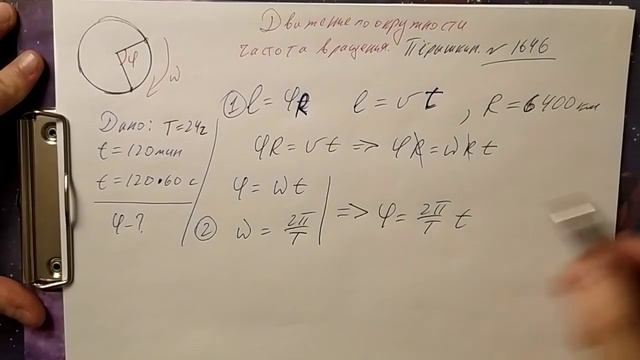 Движение по окружности
частота вращения. Пёрышкин. № 1646
φ
ω
Дано: T=24ч
t=120мин
t=120•60 с
φ-?
① l=φR l=υt, R=6400км
φR=υt => φR=ωRt
φ=ωt
② ω=2π/T => φ=2π/T t